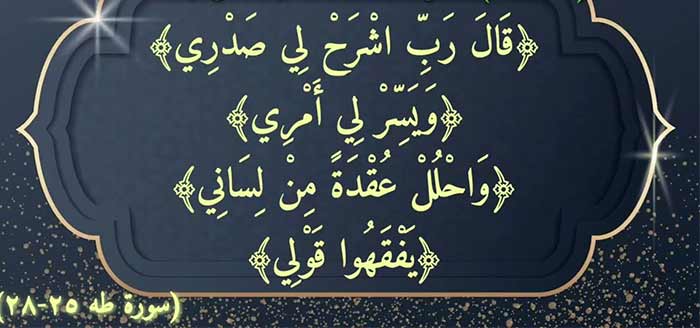 ﴿قَالَ رَبِّ اشْرَحْ لِي صَدْرِي﴾
﴿وَيَسِّرْ لِي أَمْرِي﴾
﴿وَاحْلُلْ عُقْدَةً مِنْ لِسَانِي﴾
﴿يَفْقَهُوا قَوْلِي﴾
(سورة طه ٢٥-٢٨)